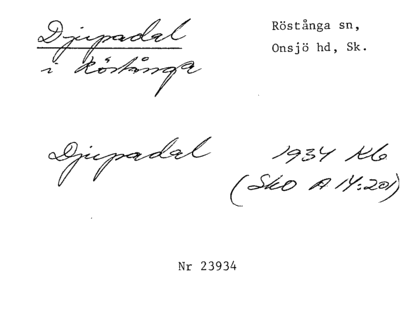 Djupadal
i Röstånga
Röstånga sn,
Onsjö hd, Sk.
Djupadal 1934 Kb
(SkO A 14:201)
Nr 23934